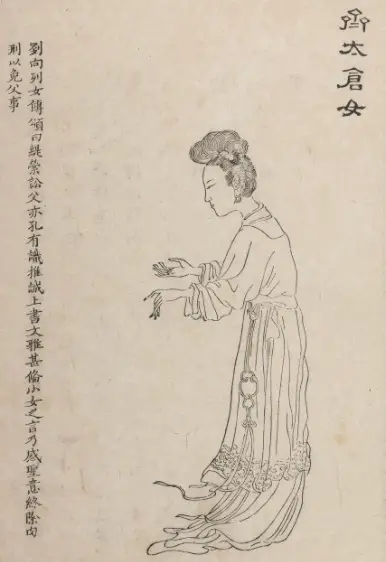 齊太倉女
劉向列女傳頌曰緹縈訟父亦孔有識推誠上書文雅甚俻小女之言乃感聖意終除肉
刑以免父事